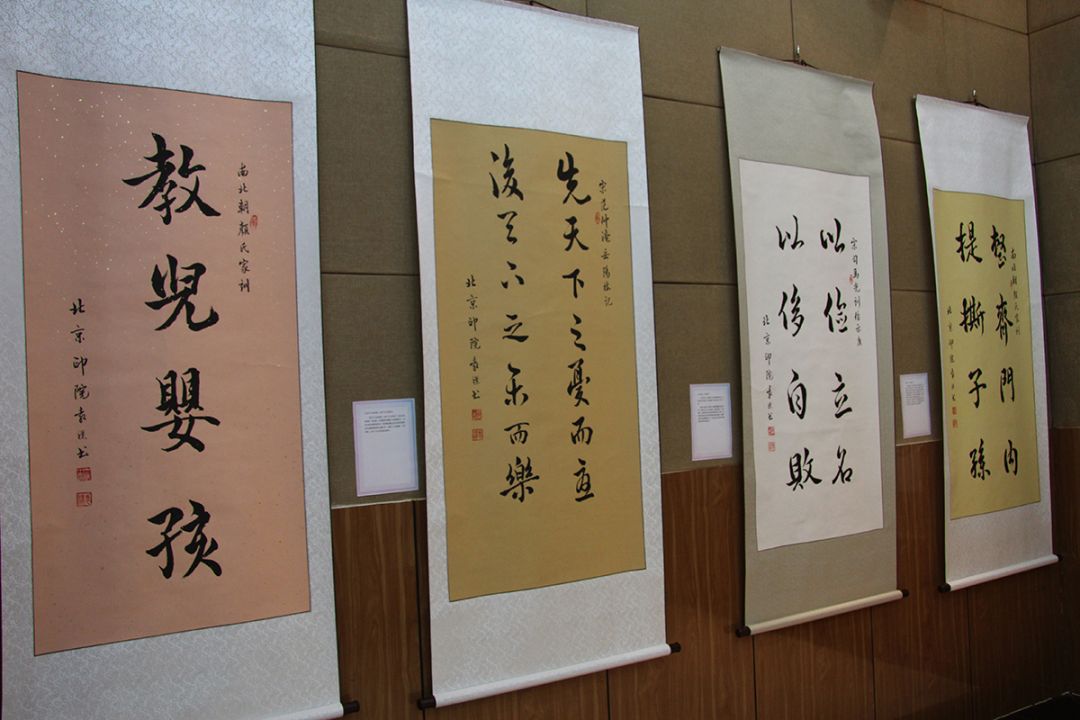 南北朝顏氏家訓
教兒嬰孩
北京印院袁书
宋范仲淹岳陽樓記
先天下之憂而憂
後天下之乐而樂
北京印院袁书
宋司馬光訓俭示康
以俭立名
以侈自敗
北京印院袁书
南北朝顏氏家訓
整齊門内
提撕子孫
北京印院袁书